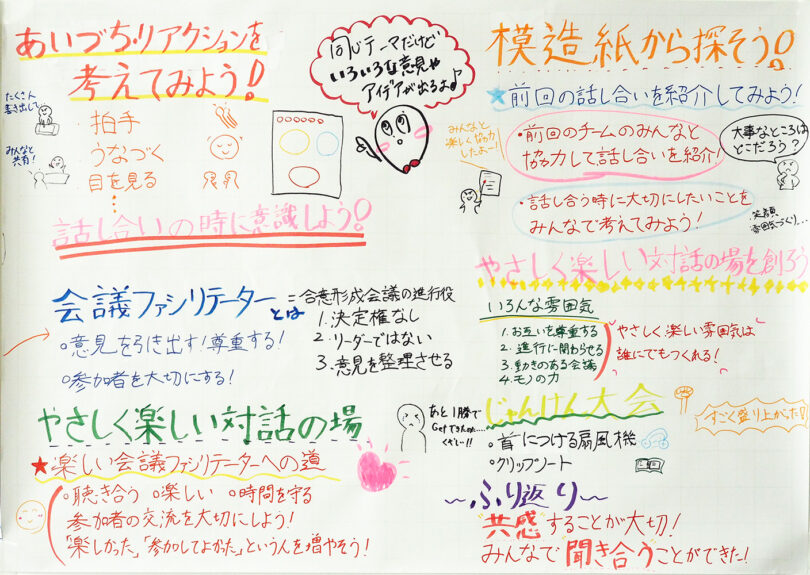 あいづち・リアクションを
考えてみよう!
たくさん
書き出して
みんなと
共有!
拍手
うなづく
目を見る
⋮
話し合いの時に意識しよう!
同じテーマだけど
いろいろな意見や
アイデアが出るよ♪
会議ファシリテーターとは
=合意形成会議の進行役
1.決定権なし
2.リーダーではない
3.意見を整理させる
○意見を引き出す!尊重する!
○参加者を大切にする!
やさしく楽しい対話の場
★楽しい会議ファシリテーターへの道
○聴き合う ○楽しい ○時間を守る
参加者の交流を大切にしよう!
「楽しかった」「参加してよかった」という人を増やそう!
模造紙から探そう!
★前回の話し合いを紹介してみよう!
みんなと
楽しく協力
したよー!
・前回のチームのみんなと
協力して話し合いを紹介!
大事なところは
どこだろう?
・話し合う時に大切にしたいことを
みんなで考えてみよう!
・笑顔
・雰囲気づくり...
やさしく楽しい対話の場を創ろう
いろんな雰囲気
1.お互いを尊重する
2.進行に関わらせる
3.動きのある会議
4.モノの力
やさしく楽しい雰囲気は
誰にでもつくれる!
じゃんけん大会
あと1勝で
Getできたのに....
くやしー!!
すごく盛り上がった!
・首につける扇風機
・クリップノート
~ふり返り~
共感することが大切!
みんなで聞き合うことができた!